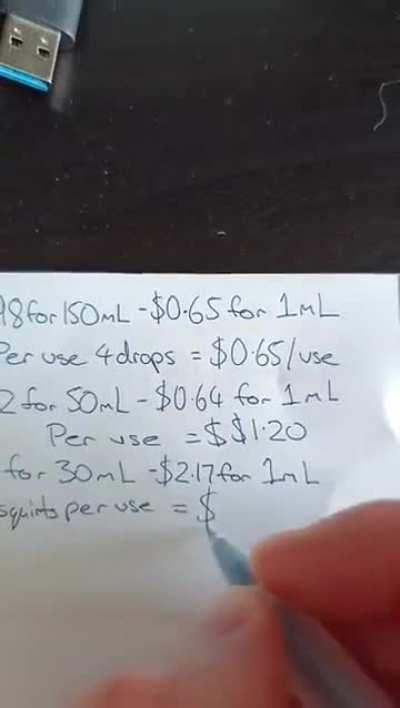 98 for 150mL - $0.65 for 1mL
Per use 4 drops = $0.65/use
2 for 50mL - $0.64 for 1mL
Per use = $ $1.20
for 30mL - $2.17 for 1mL
squirts per use = $